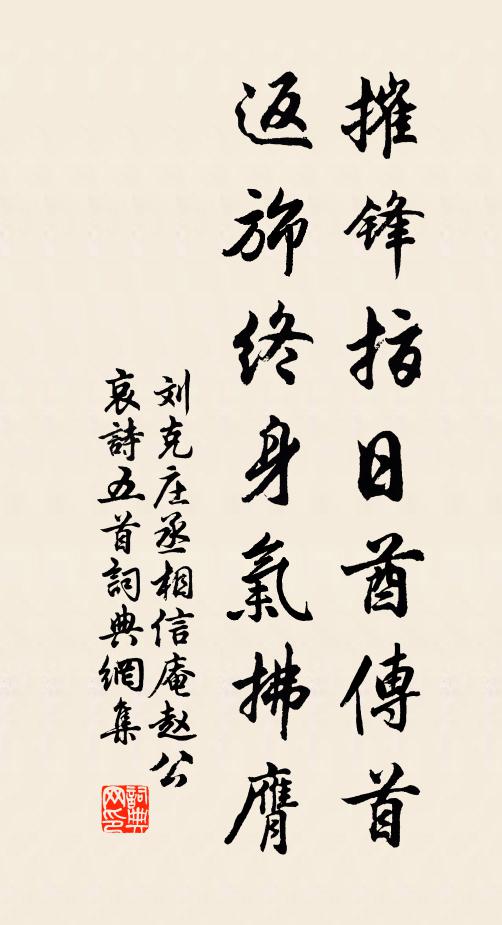 摧锋指日酋傳首
返斾終身氣拂膺
刘克庄丞相信庵赵公
哀詩五首詞典網集
詞典网印